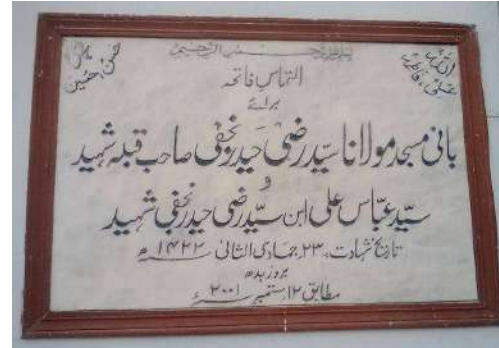 بسم اللہ الرحمن الرحیم
اللہ محمد
علی فاطمہ
حسن حسین
التماس فاتحہ
برائے
بانی مسجد مولانا سیّد رضی حیدر نجفی صاحب قبلہ شہید
و
سیّد عبّاس علی ابن سیّد رضی حیدر نجفی شہید
تاریخ شہادت، ۲۳ جمادی الثانی ۱۴۲۲ھ
بروز بدھ
مطابق ۱۲ ستمبر ۲۰۰۱ء